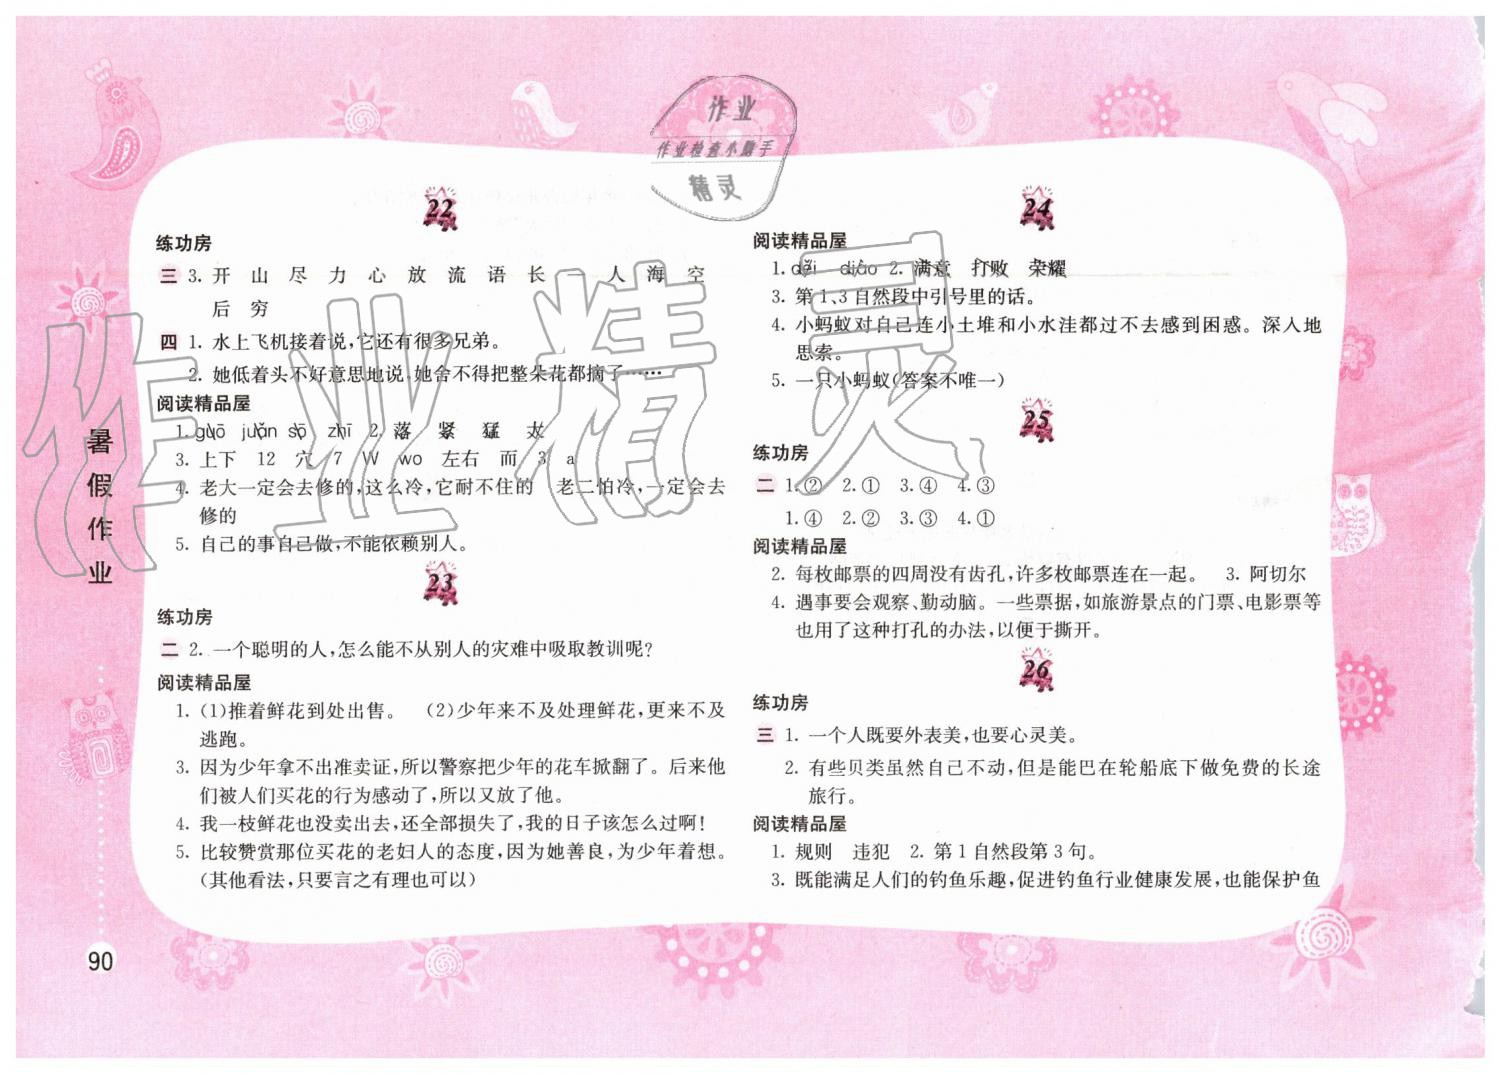 作业
作业检查小助手
精灵
22
练功房
三 3. 开 山 尽 力 心 放 流 语 长 一 人 海 空
后 穷
四 1. 水上飞机接着说,它还有很多兄弟。
2. 她低着头不好意思地说,她舍不得把整朵花都摘了……
阅读精品屋
1. guō juǎn sō zhī 2. 落 紧 猛 太
3. 上下 12 穴 7 W wo 左右 而 3 a
4. 老大一定会去修的,这么冷,它耐不住的 老二怕冷,一定会去
修的
5. 自己的事自己做,不能依赖别人。
23
练功房
二 2. 一个聪明的人,怎么能不从别人的灾难中吸取教训呢?
阅读精品屋
1. (1)推着鲜花到处出售。 (2)少年来不及处理鲜花,更来不及
逃跑。
3. 因为少年拿不出准卖证,所以警察把少年的花车掀翻了。后来他
们被人们买花的行为感动了,所以又放了他。
4. 我一枝鲜花也没卖出去,还全部损失了,我的日子该怎么过啊!
5. 比较赞赏那位买花的老妇人的态度,因为她善良,为少年着想。
(其他看法,只要言之有理也可以)
24
阅读精品屋
1. děi diào 2. 满意 打败 荣耀
3. 第1、3自然段中引号里的话。
4. 小蚂蚁对自己连小土堆和小水洼都过不去感到困惑。深入地
思索。
5. 一只小蚂蚁(答案不唯一)
25
练功房
二 1.② 2.① 3.④ 4.③
1.④ 2.② 3.③ 4.①
阅读精品屋
2. 每枚邮票的四周没有齿孔,许多枚邮票连在一起。 3. 阿切尔
4. 遇事要会观察、勤动脑。一些票据,如旅游景点的门票、电影票等
也用了这种打孔的办法,以便于撕开。
26
练功房
三 1. 一个人既要外表美,也要心灵美。
2. 有些贝类虽然自己不动,但是能巴在轮船底下做免费的长途
旅行。
阅读精品屋
1. 规则 违犯 2. 第1自然段第3句。
3. 既能满足人们的钓鱼乐趣,促进钓鱼行业健康发展,也能保护鱼
暑假作业
90
作业精灵